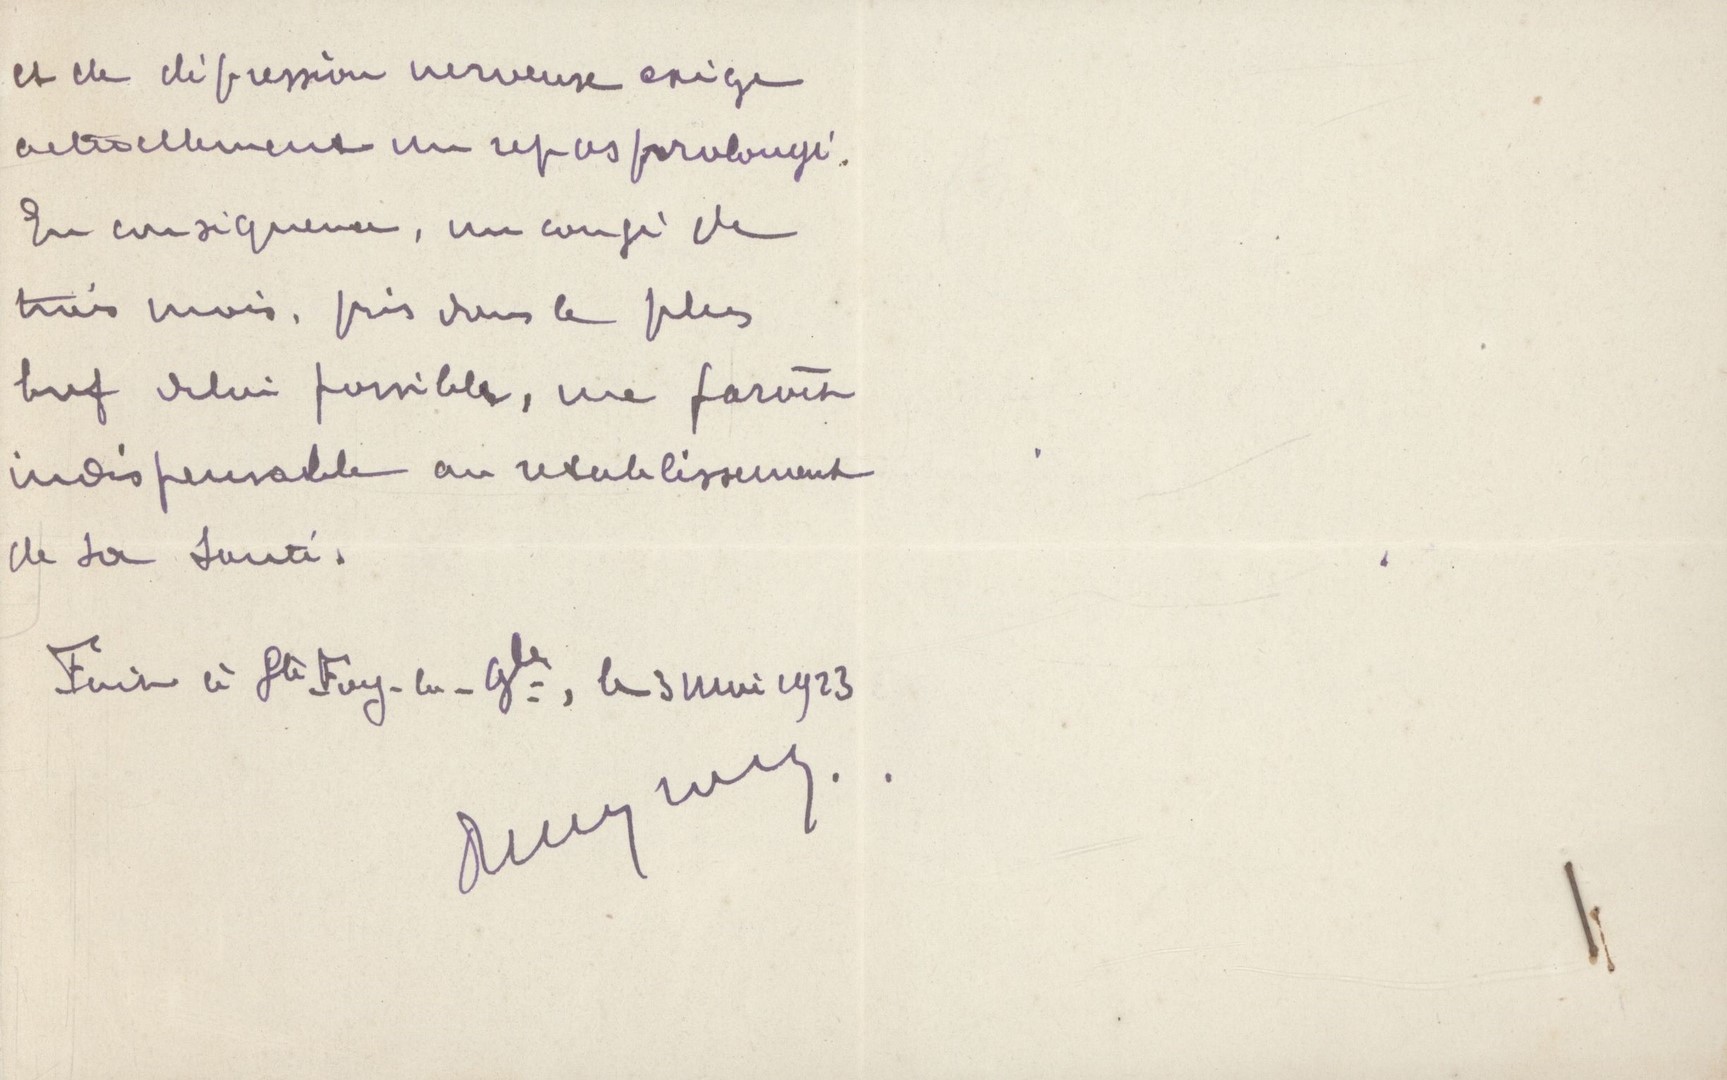 et de dépression nerveuse exige
actuellement un repos prolongé.
En conséquence, un congé de
trois mois, pris dans le plus
bref délai possible, me paroît
indispensable au rétablissement
de sa santé.
Fait à Ste Foy-la-Gde, le 3 mai 1923